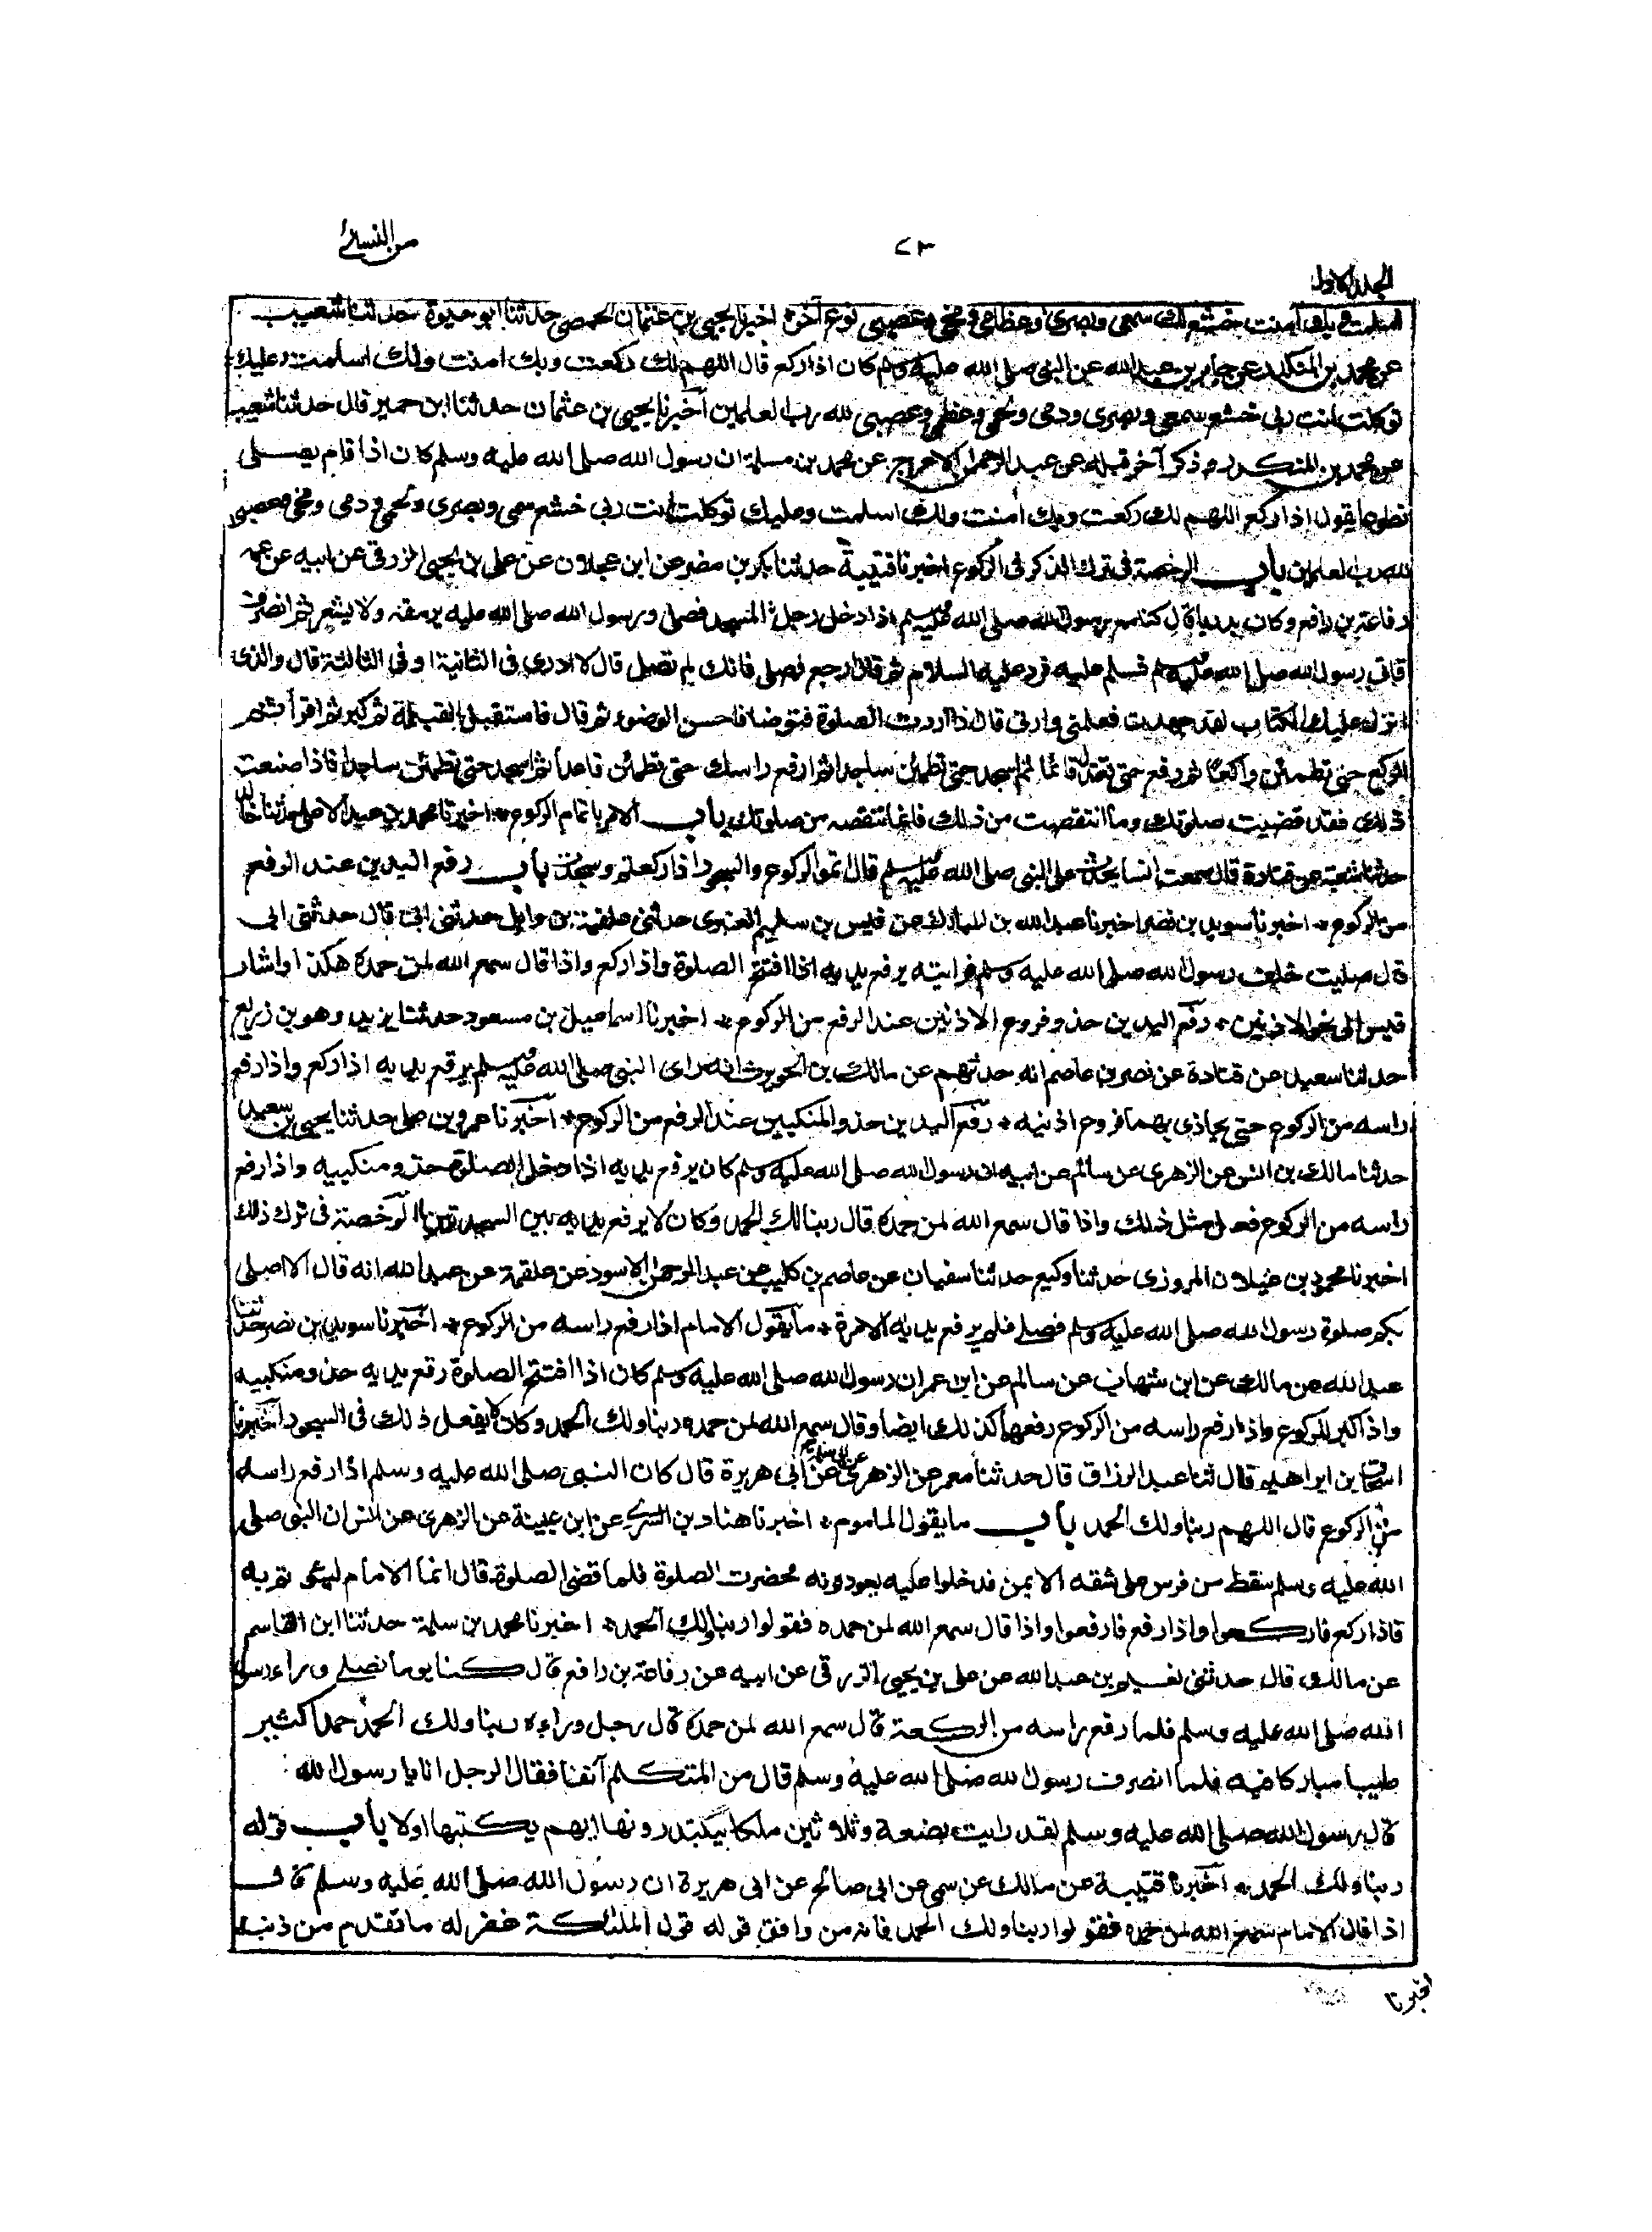 من النسائي
٧٣
الجلد الاول
اسلمت وبك امنت خشع لك سمعي وبصري وعظامي ومخي وعصبي نوع آخر اخبرنا يحيى بن عثمان الحمصي حدثنا ابو حيوة حدثنا شعيب
عن محمد بن المنكدر عن جابر بن عبد الله عن النبي صلى الله عليه وسلم كان اذا ركع قال اللهم لك ركعت وبك امنت ولك اسلمت وعليك
توكلت انت ربي خشع سمعي وبصري ودمي ولحمي وعظمي وعصبي لله رب العلمين آخبرنا يحيى بن عثمان حدثنا ابن حمير قال حدثنا شعيب
عن محمد بن المنكدر وذكر آخر قبله عن عبد الرحمن الاعرج عن محمد بن مسلمة ان رسول الله صلى الله عليه وسلم كان اذا قام يصلى
تطوعا يقول اذا ركع اللهم لك ركعت وبك امنت ولك اسلمت وعليك توكلت انت ربي خشع سمعي وبصري ولحمي ودمي ومخي وعصبي
لله رب العلمين باب الرخصة في ترك الذكر في الركوع اخبرنا قتيبة حدثنا بكر بن مضر عن ابن عجلان عن علي بن يحيى الزرقي عن ابيه عن عمه
رفاعة بن رافع وكان بدريا قال كنا مع رسول الله صلى الله عليه وسلم اذ ادخل رجل المسجد فصلى ورسول الله صلى الله عليه يرمقه ولا يشعر ثم انصرف
فاتى رسول الله صلى الله عليه وسلم فسلم عليه فرد عليه السلام ثم قال ارجع فصلى فانك لم تصل قال لا ادري في الثانية او في الثالثة قال والذي
انزل عليك الكتاب لقد جهدت فعلمني وارني قال اذا اردت الصلوة فتوضا فاحسن الوضوء ثم قال فاستقبل القبلة ثم كبر ثم اقرأ ثم
اركع حتى تطمئن راكعا ثم ارفع حتى تعتدل قائما ثم اسجد حتى تطمئن ساجدا ثم ارفع راسك حتى تطمئن قاعدا ثم اسجد حتى تطمئن ساجدا فاذا صنعت
ذلك فقد قضيت صلوتك وما انتقصت من ذلك فانما تنقصه من صلوتك باب الامر باتمام الركوع اخبرنا محمد بن عبد الاعلى حدثنا خالد
حدثنا شعبة عن قتادة قال سمعت انسا يحدث على النبي صلى الله عليه وسلم قال اتموا الركوع والسجود اذا ركعتم وسجدتم باب رفع اليدين عند الرفع
من الركوع اخبرنا سويد بن نصر اخبرنا عبد الله بن المبارك عن قيس بن سليم العنبري حدثني علقمة بن وايل حدثني ابي قال حدثني ابي
قال صليت خلف رسول الله صلى الله عليه وسلم فرايته يرفع يديه اذا افتتح الصلوة واذا ركع واذا قال سمع الله لمن حمده هكذا واشار
قيس الى نحو الاذنين رفع اليدين حذو فروع الاذنين عند الرفع من الركوع اخبرنا اسماعيل بن مسعود حدثنا يزيد وهو بن زريع
حدثنا سعيد عن قتادة عن نصر بن عاصم انه حدثهم عن مالك بن الحويرث انه راى النبي صلى الله عليه وسلم يرفع يديه اذا ركع واذا رفع
راسه من الركوع حتى يحاذي بهما فروع اذنيه رفع اليدين حذو المنكبين عند الرفع من الركوع آخبرنا عمرو بن علي حدثنا يحيى بن سعيد
حدثنا مالك بن انس عن الزهري عن سالم عن ابيه ان رسول الله صلى الله عليه وسلم كان يرفع يديه اذا دخل الصلوة حذو منكبيه واذا رفع
راسه من الركوع فعل مثل ذلك واذا قال سمع الله لمن حمده قال ربنا لك الحمد وكان لا يرفع يديه بين السجدتين الرخصة في ترك ذلك
اخبرنا محمود بن غيلان المروزي حدثنا وكيع حدثنا سفيان عن عاصم بن كليب عن عبد الرحمن الاسود عن علقمة عن عبد الله انه قال الا اصلى
بكم صلوة رسول الله صلى الله عليه وسلم فصلى فلم يرفع يديه الا مرة ما يقول الامام اذا رفع راسه من الركوع آخبرنا سويد بن نصر حدثنا
عبد الله عن مالك عن ابن شهاب عن سالم عن ابن عمر ان رسول الله صلى الله عليه وسلم كان اذا افتتح الصلوة رفع يديه حذو منكبيه
واذا كبر للركوع واذا رفع راسه من الركوع رفعهما كذلك ايضا وقال سمع الله لمن حمده ربنا ولك الحمد وكان لا يفعل ذلك في السجود آخبرنا
اسحاق بن ابراهيم قال ثنا عبد الرزاق قال حدثنا معمر عن الزهري عن ابي سلمة عن ابي هريرة قال كان النبي صلى الله عليه وسلم اذا رفع راسه
من الركوع قال اللهم ربنا ولك الحمد باب ما يقول الماموم اخبرنا هناد بن السري عن ابن عيينة عن الزهري عن انس ان النبي صلى
الله عليه وسلم سقط من فرس على شقه الايمن فدخلوا عليه يعودونه فحضرت الصلوة فلما قضى الصلوة قال انما الامام ليؤتم به
فاذا ركع فاركعوا واذا رفع فارفعوا واذا قال سمع الله لمن حمده فقولوا ربنا ولك الحمد اخبرنا محمد بن سلمة حدثنا ابن القاسم
عن مالك قال حدثني نعيم بن عبد الله عن علي بن يحيى الزرقي عن ابيه عن رفاعة بن رافع قال كنا يوما نصلي وراء رسول
الله صلى الله عليه وسلم فلما رفع راسه من الركعة قال سمع الله لمن حمده قال رجل وراءه ربنا ولك الحمد حمدا كثير
طيبا مباركا فيه فلما انصرف رسول الله صلى الله عليه وسلم قال من المتكلم آنفا فقال الرجل انا يا رسول الله
قال رسول الله صلى الله عليه وسلم لقد رايت بضعة وثلاثين ملكا يبتدرونها ايهم يكتبها اولا باب قوله
ربنا ولك الحمد آخبرنا قتيبة عن مالك عن سمي عن ابي صالح عن ابي هريرة ان رسول الله صلى الله عليه وسلم قال
اذا قال الامام سمع الله لمن حمده فقولوا ربنا ولك الحمد فانه من وافق قوله قول الملئكة غفر له ما تقدم من ذنبه
اخبرنا